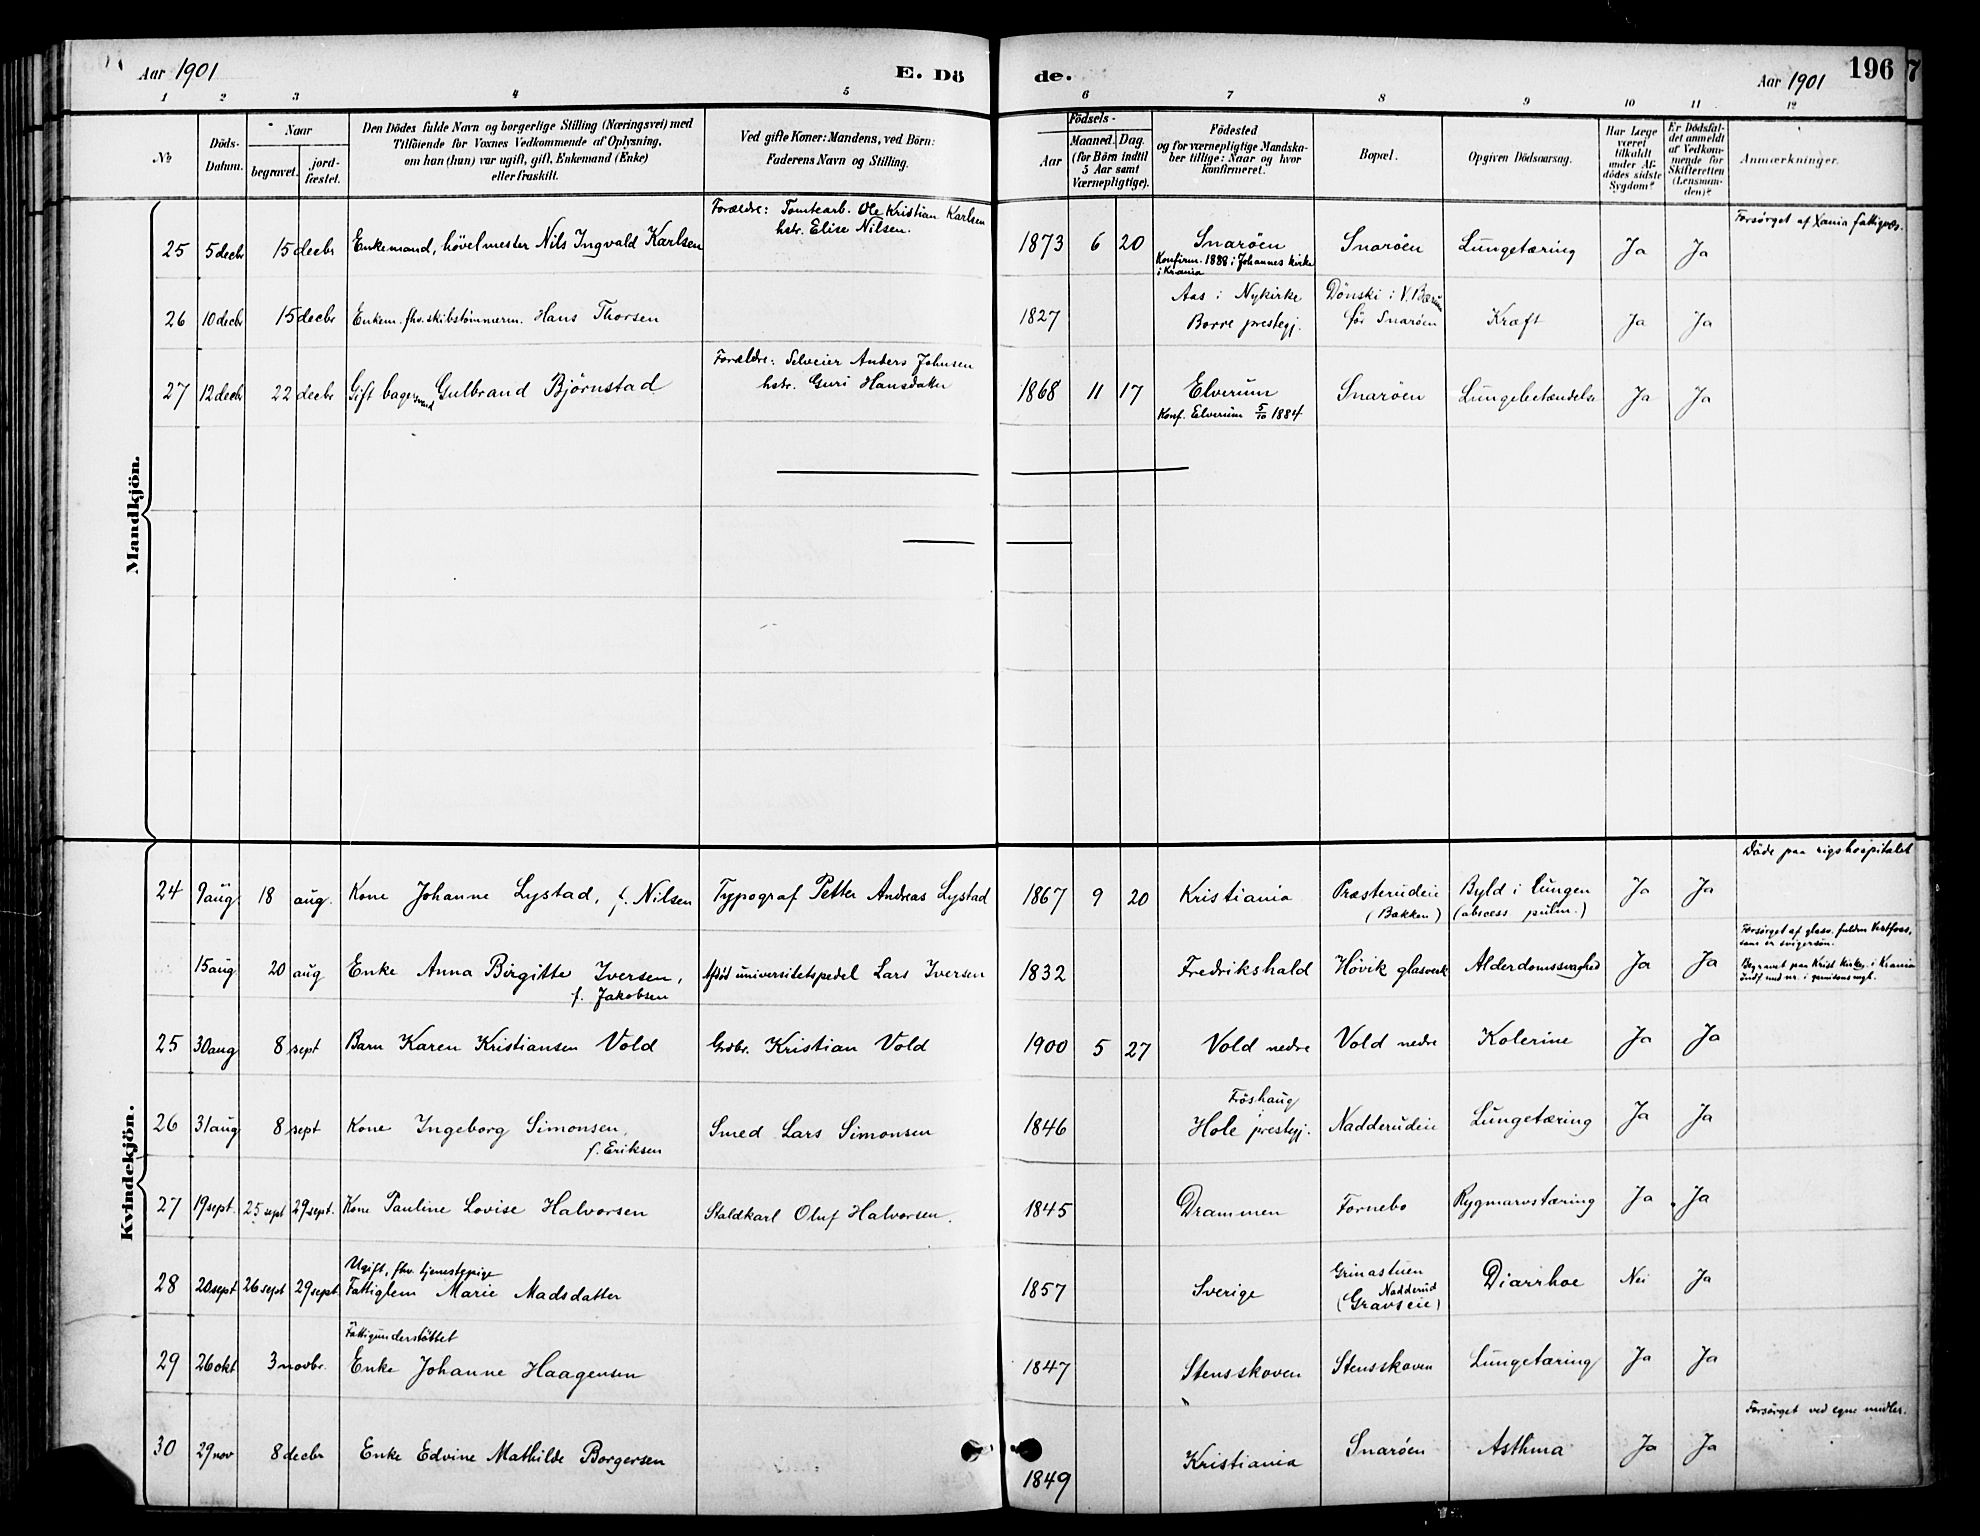 Aar 1901
E. Dö
de.
Aar 1901
196
7
1 2 3 4 5 6 7 8 9 10 11 12
№
Döds-
Datum.
Naar
begravet.
jord-
fæstet.
Den Dödes fulde Navn og borgerlige Stilling (Næringsvei) med
Tilföiende for Voxnes Vedkommende af Oplysning,
om han (hun) var ugift, gift, Enkemand (Enke)
eller fraskilt.
Ved gifte Koner: Mandens, ved Börn:
Faderens Navn og Stilling.
Födsels-
Aar
Maaned. Dag.
(for Börn indtil
5 Aar samt
Værnepligtige).
Födested
og for værnepligtige Mandska-
ber tillige: Naar og hvor
konfirmeret.
Bopæl.
Opgiven Dödsaarsag.
Har Læge
været
tilkaldt
under Af-
dödes sidste
Sygdom?
Er Dödsfal-
det anmeldt
af Vedkom-
mende for
Skifteretten
(Lensman-
den)?
Anmærkninger.
Mandkjön.
Forældre: Tomtearb. Ole Kristian Karlsen
hstr. Elise Nilsen.
Forsørget af Xania fattigvæs.
25 5 decbr 15 decbr Enkemand, hövelmester Nils Ingvald Karlsen 1873 6 20 Snaröen Snaröen Lungetæring Ja Ja
Konfirm. 1888 i Johannes kirke
i Krania
26 10 decbr 15 decbr Enkem. fhv. skibstömmerm. Hans Thorsen 1827 Aas i Nykirke
Borre prestegj.
Dönski i V. Bærum
för Snaröen
Kræft Ja Ja
Forældre: Selveier Anders Johnsen
hstr. Guri Hansdatter
27 12 decbr 22 decbr Gift bagersvend Gulbrand Björnstad 1868 11 17 Elverum Snaröen Lungebetændelse Ja Ja
Konf. Elverum 5/10 1884
Kvindekjön.
Döde paa rigshospitalet
24 9 aug 18 aug. Kone Johanne Lystad, f. Nilsen Typograf Petter Andreas Lystad 1867 9 20 Kristiania Præsterudeie
(Bakken)
Byld i lungen
(absces pulm.)
Ja Ja
15 aug 20 aug Enke Anna Birgitte Iversen,
f. Jakobsen
Afdöd universitetspedel Lars Iversen 1832 Fredrikshald Hövik glasverk Alderdomssvaghed Ja Ja
Forsørget af glasv. fuldm.
som er svigersøn.
Begravet paa Krist kirkeg. i Krania
25 30 aug 8 sept Barn Karen Kristiansen Vold Grdbr. Kristian Vold 1900 5 27 Vold nedre Vold nedre Kolerine Ja Ja
26 31 aug 8 sept Kone Ingeborg Simonsen,
f. Eriksen
Smed Lars Simonsen 1846 Fröshaug
Hole prestegj.
Nadderudeie Lungetæring Ja Ja
27 19 sept. 25 sept 29 sept. Kone Pauline Lovise Halvorsen Staldkarl Oluf Halvorsen. 1845 Drammen Fornebo Rygmarvstæring Ja Ja
Ugift, fhv. tjenestepige
28 20 sept 26 sept 29 sept. Fattiglem Marie Madsdatter 1857 Sverige Grinastuen
Nadderud
(Gravseie)
Diarrhoe Nei Ja
Fattigunderstöttet
29 26 okt 3 novbr. Enke Johanne Haagensen 1847 Stensskoven Stensskoven Lungetæring Ja Ja
Forsørget ved egne midler.
30 29 nov 8 decbr Enke Edvine Mathilde Borgersen 1849 Kristiania Snaröen Asthma Ja Ja